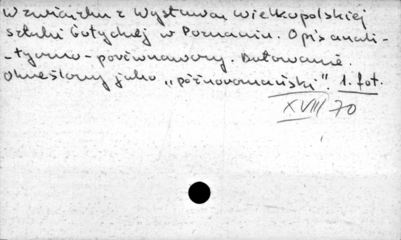 W związku z Wystawą Wielkopolskiej
sztuki Gotyckiej w Poznaniu. Opis anali-
-tyczno-porównawczy. Datowanie.
Określony jako „późnoromański". 1. fot.
XVIII/70